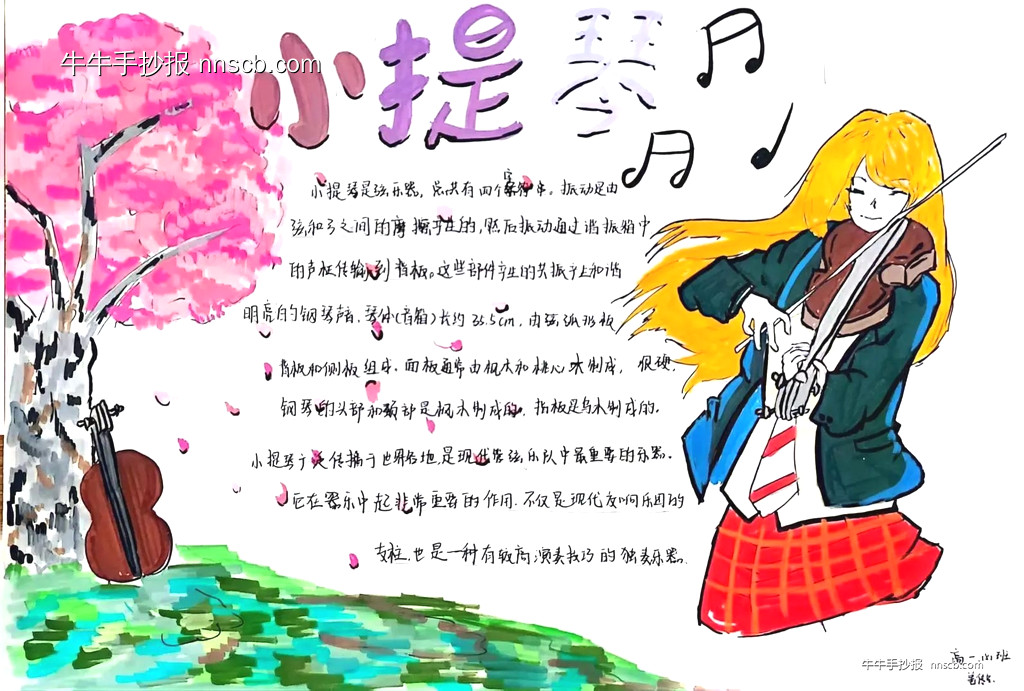 牛牛手抄报 nnscb.com
小提琴
小提琴是弦乐器，总共有四个琴弦。振动是由
弦和弓之间的摩擦产生的，然后振动通过谐振箱中
的声柱传输到背板。这些部件产生的共振产生和谐
明亮的钢琴声，琴体(音箱)长约35.5cm，由弧形板
背板和侧板组成。面板通常由枫木和核心木制成，很硬，
钢琴的头部和颈部是枫木制成的，指板是乌木制成的。
小提琴广泛传播于世界各地，是现代管弦乐队中最重要的乐器。
它在器乐中起非常重要的作用。不仅是现代交响乐团的
支柱，也是一种有较高演奏技巧的独奏乐器.
高一 班
牛牛手抄报 nnscb.com